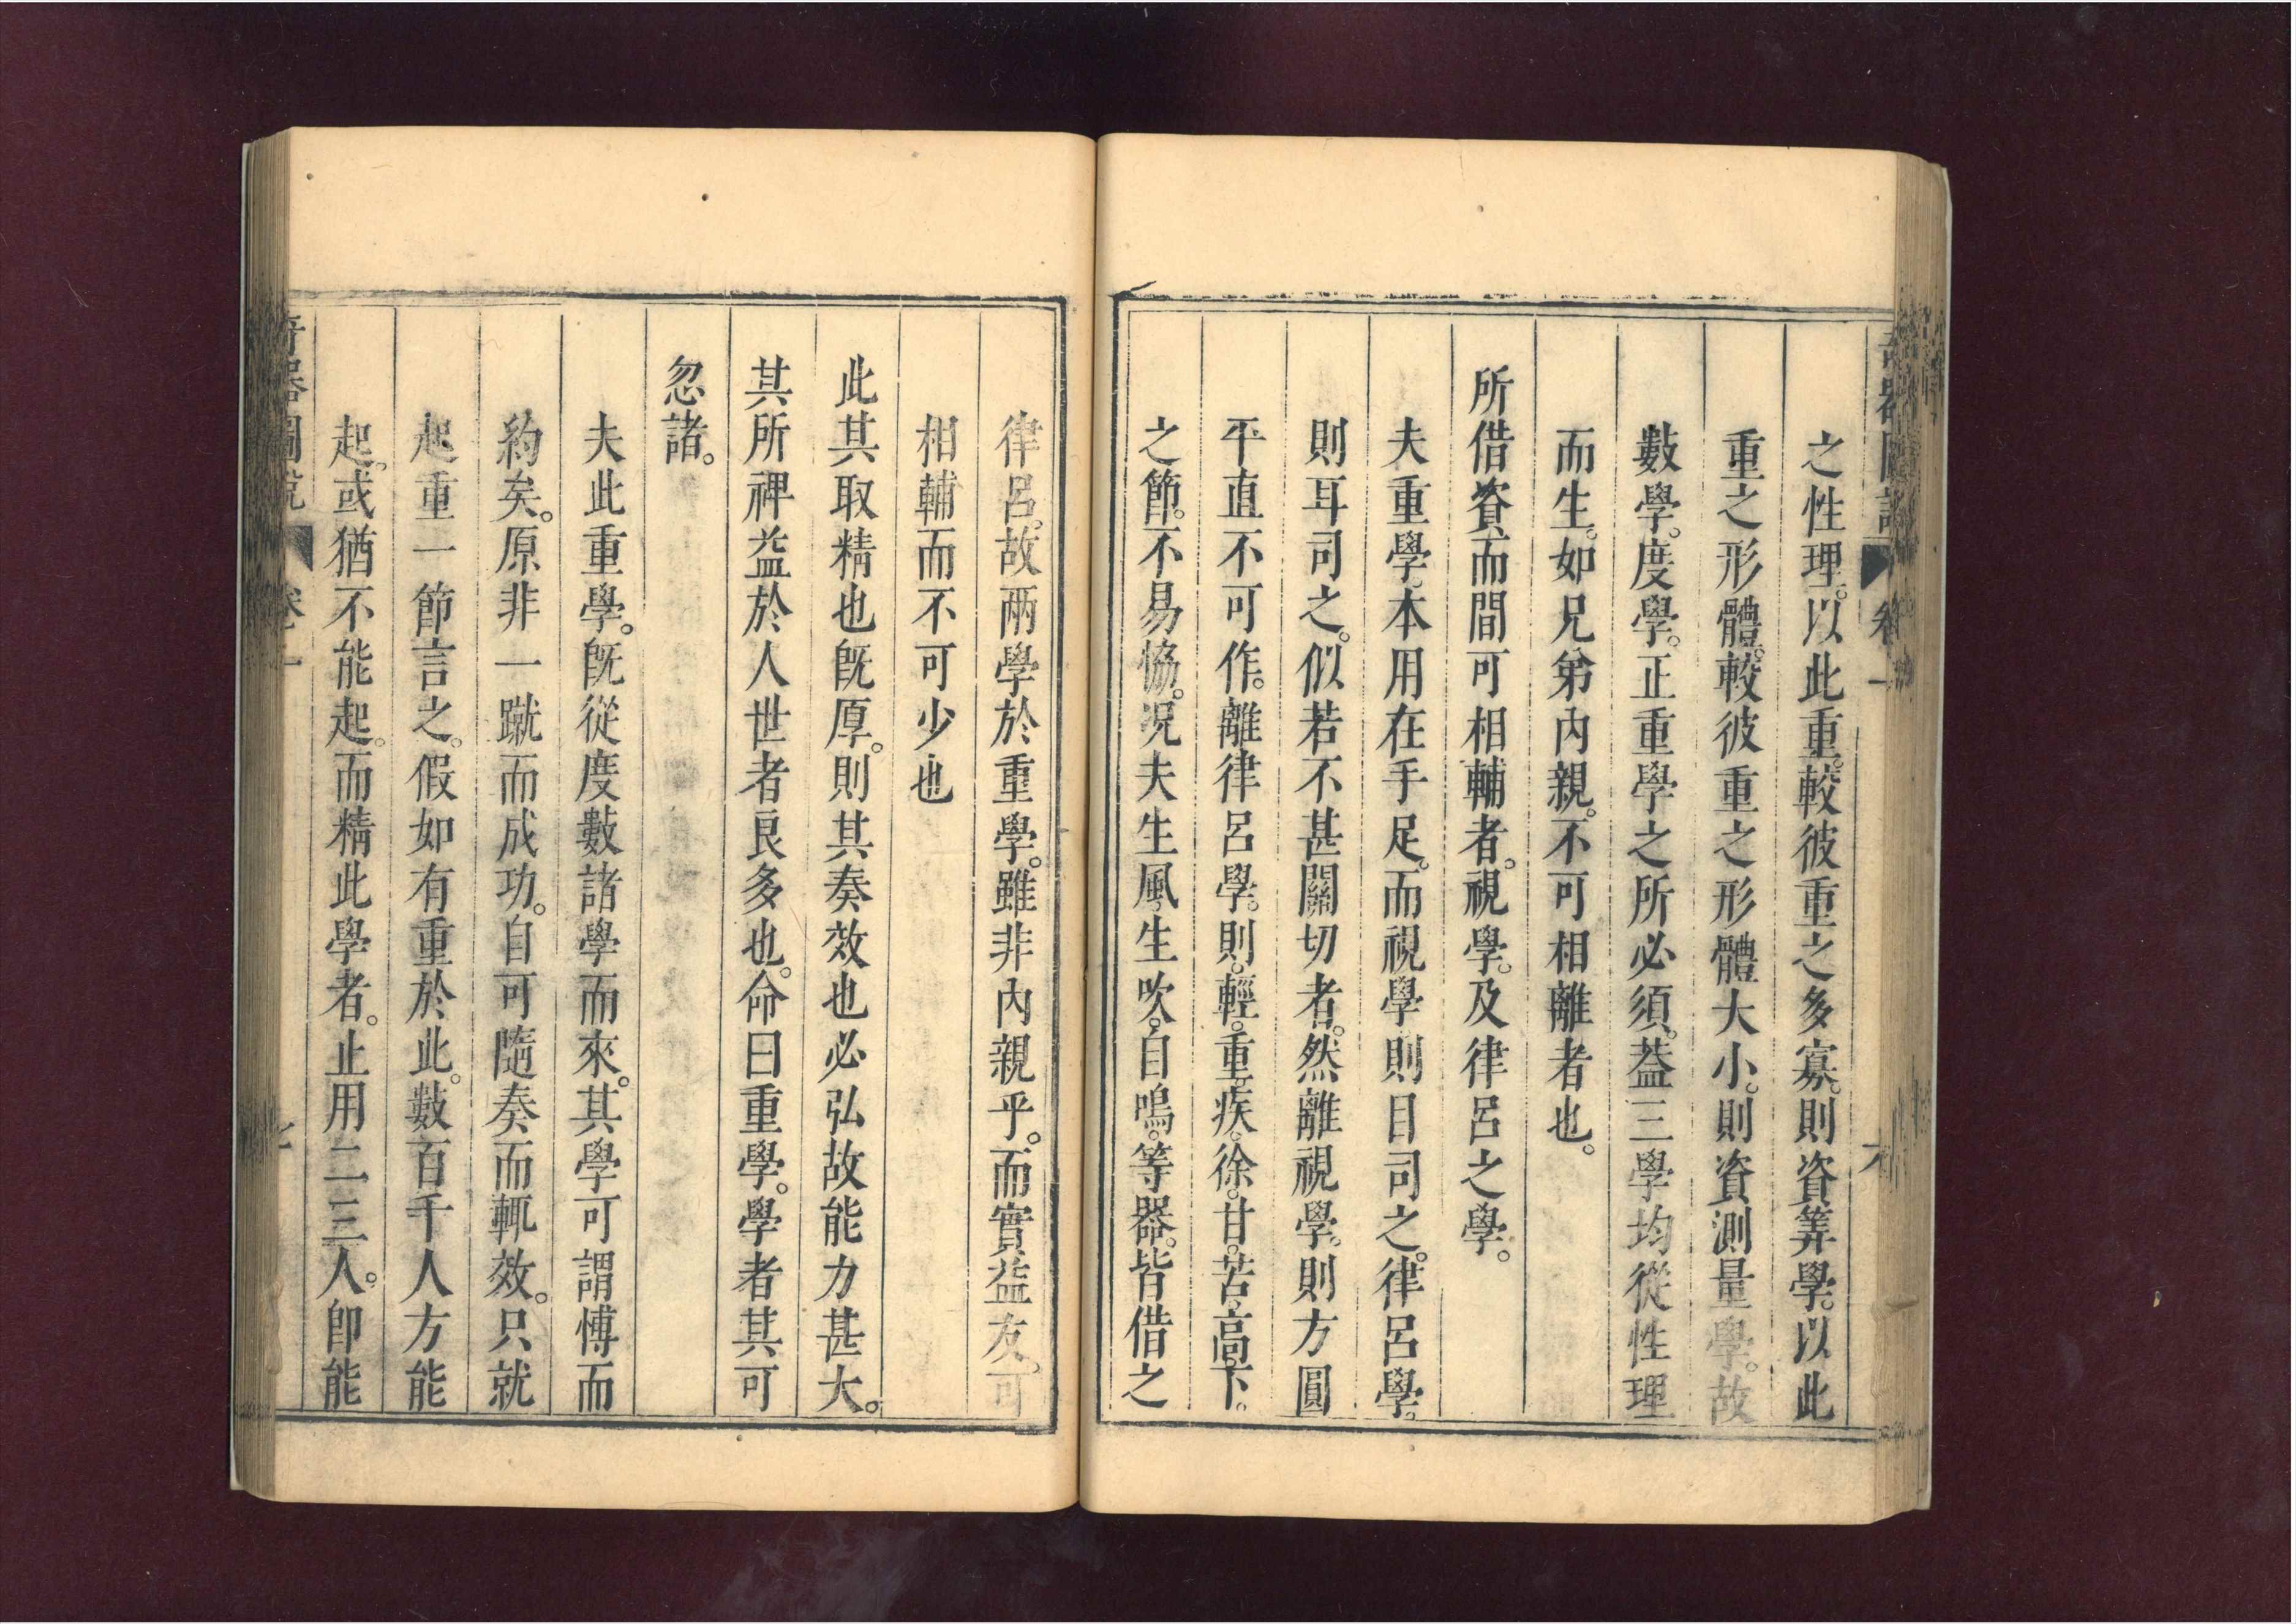 奇器圖說 卷一 六
之性理。以此重。較彼重之多寡。則資筭學。以此
重之形體。較彼重之形體大小。則資測量學。故
數學。度學。正重學之所必須。葢三學均從性理
而生。如兄弟內親。不可相離者也。
所借資而間可相輔者。視學。及律呂之學。
夫重學。本用在手足。而視學則目司之。律呂學。
則耳司之。似若不甚關切者。然離視學。則方圓
平直不可作。離律呂學。則。輕。重。疾。徐。甘。苦。高。下。
之節。不易恊。況夫生風。生吹。自鳴。等器。皆借之
律呂。故兩學於重學。雖非內親乎。而實益友。可
相輔而不可少也
此其取精也旣厚。則其奏效也必弘故能力甚大。
其所裨益於人世者良多也。命曰重學。學者其可
忽諸。
夫此重學。旣從度數諸學而來。其學可謂博而
約矣。原非一蹴而成功。自可隨奏而輒效。只就
起重一節言之。假如有重於此。數百千人方能
起。或猶不能起。而精此學者。止用二三人。卽能
奇器圖說 卷一